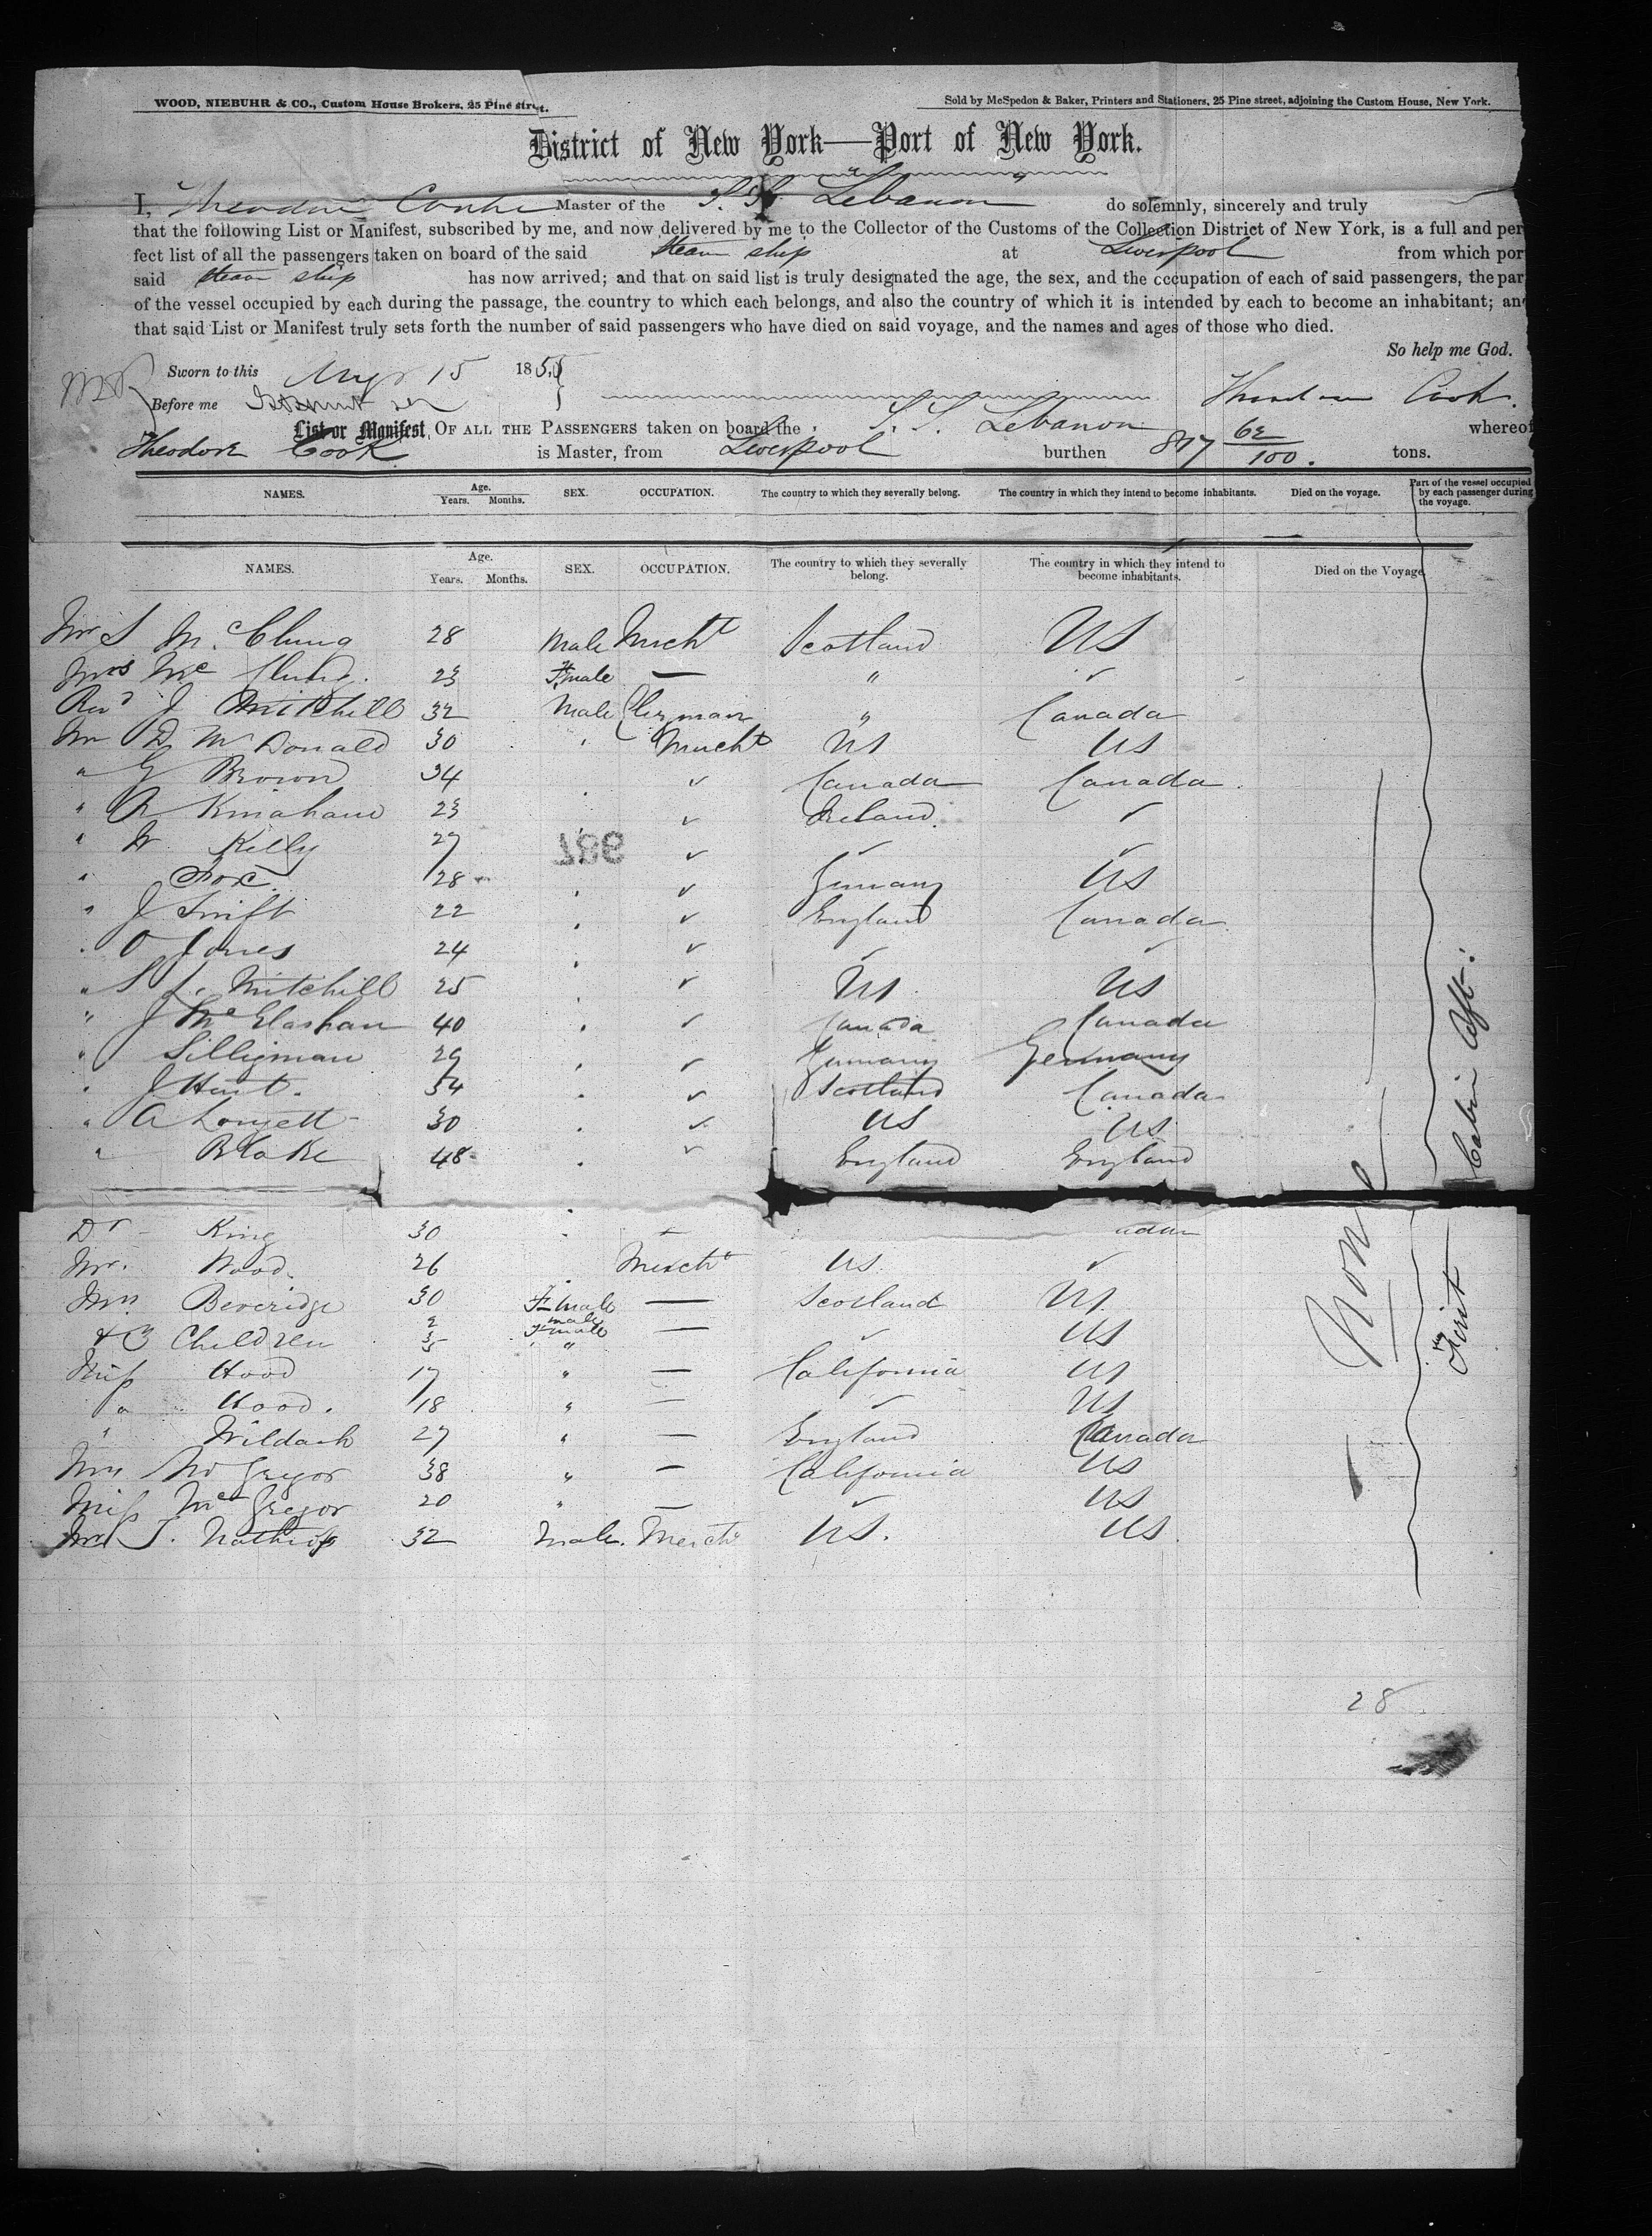 WOOD, NIEBUHR & CO., Custom House Brokers, 25 Pine street.
Sold by McSpedon & Baker, Printers and Stationers, 25 Pine street, adjoining the Custom House, New York.
District of New York—Port of New York.
I, Theodore Master of the S.S. "Lebanon" do solemnly, sincerely and truly
that the following List or Manifest, subscribed by me, and now delivered by me to the Collector of the Customs of the Collection District of New York, is a full and per
fect list of all the passengers taken on board of the said steam ship at Liverpool from which por
said steam ship has now arrived; and that on said list is truly designated the age, the sex, and the occupation of each of said passengers, the par
of the vessel occupied by each during the passage, the country to which each belongs, and also the country of which it is intended by each to become an inhabitant; an
that said List or Manifest truly sets forth the number of said passengers who have died on said voyage, and the names and ages of those who died.
So help me God.
Sworn to this Augt 15 1855
Before me
Theodore Cook.
List or Manifest, OF ALL THE PASSENGERS taken on board the S. S. Lebanon whereof
Theodore Cook is Master, from Liverpool burthen 817 62/100. tons.
NAMES. Age. Years. Months. SEX. OCCUPATION. The country to which they severally belong. The country in which they intend to become inhabitants. Died on the voyage. Part of the vessel occupied by each passenger during the voyage.
NAMES. Age. Years. Months. SEX. OCCUPATION. The country to which they severally belong. The country in which they intend to become inhabitants. Died on the Voyage
Mr S Mc Clung 28 Male Mercht Scotland US
Mrs Mc Clung. 23 Female — " "
Revd J Mitchill 32 Male Clergyman " Canada
Mr D McDonald 30 Mercht US US
" G Brown 34 ✓ Canada Canada
" R Kinahan 23 ✓ Ireland. ✓
" W Kelly 27 ✓ ✓ ✓
997
" Fox. 28 ✓ Germany US
" J Swift 22 ✓ England Canada
" O Jones 24 ✓ ✓ ✓
" S L. Mitchill 25 ✓ US US
" J Mc Glashan 40 ✓ Canada Canada
" Silligman 29 ✓ Germany Germany
" J Hunt. 34 ✓ Scotland Canada
" A 30 ✓ US US
" Blake 48 ✓ England England
Cabin Aft.
Dr King 30
Mr. Wood. 26 Mercht US ✓
Mrs Beveridge 30 Female — Scotland US
& 3 Children 2 3 5 male Female " — ✓ US
Miss Hood 17 " — California US
" Hood. 18 " — ✓ US
" Wildash 27 " — England Canada
Mrs McGregor 38 " — California US
Miss McGregor 20 " — ✓ US
Mr J. Nathrop 32 Male. Mercht US. US.
None
28